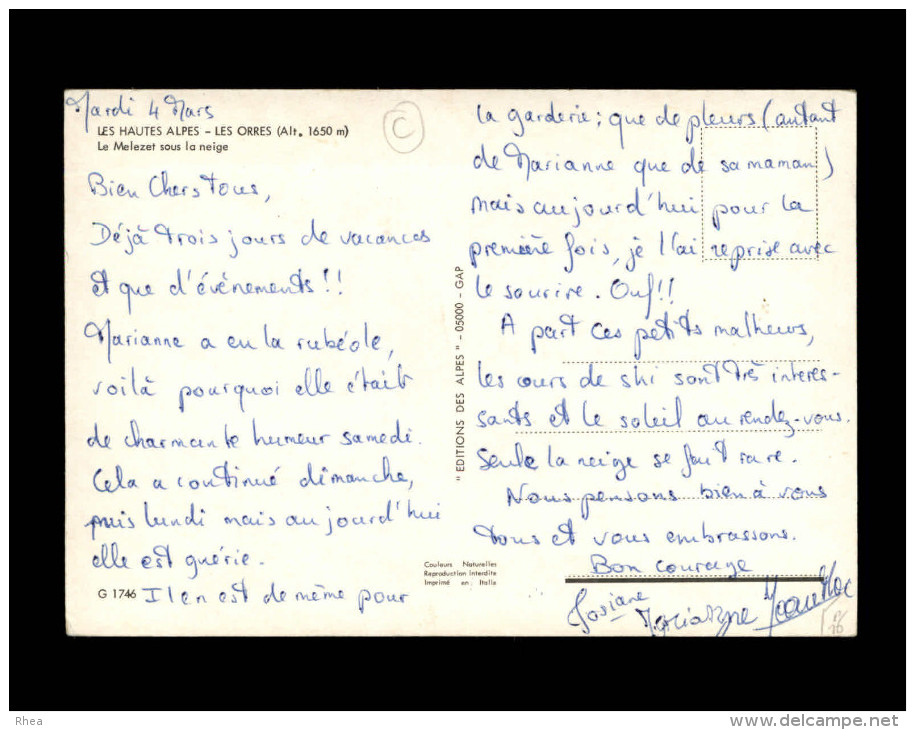 Mardi 4 Mars
LES HAUTES ALPES - LES ORRES (Alt. 1650 m)
Le Melezet sous la neige
C
Bien Chers tous,
Déjà trois jours de vacances
et que d'évènements !!
Marianne a eu la rubéole,
voilà pourquoi elle était
de charmante humeur samedi.
Cela a continué dimanche,
puis lundi mais aujourd'hui
elle est guérie.
G 1746 Il en est de même pour
Couleurs Naturelles
Reproduction interdite
Imprimé en Italie
" EDITIONS DES ALPES " - 05000 - GAP
la garderie ; que de pleurs (autant
de Marianne que de sa maman)
mais aujourd'hui pour la
première fois, je l'ai reprise avec
le sourire. Ouf !!
A part ces petits malheurs,
les cours de ski sont très interes-
sants et le soleil au rendez-vous.
Seule la neige se fait rare.
Nous pensons bien à vous
tous et vous embrassons.
Bon courage
Josiane Marianne
Rhea
www.delcampe.net